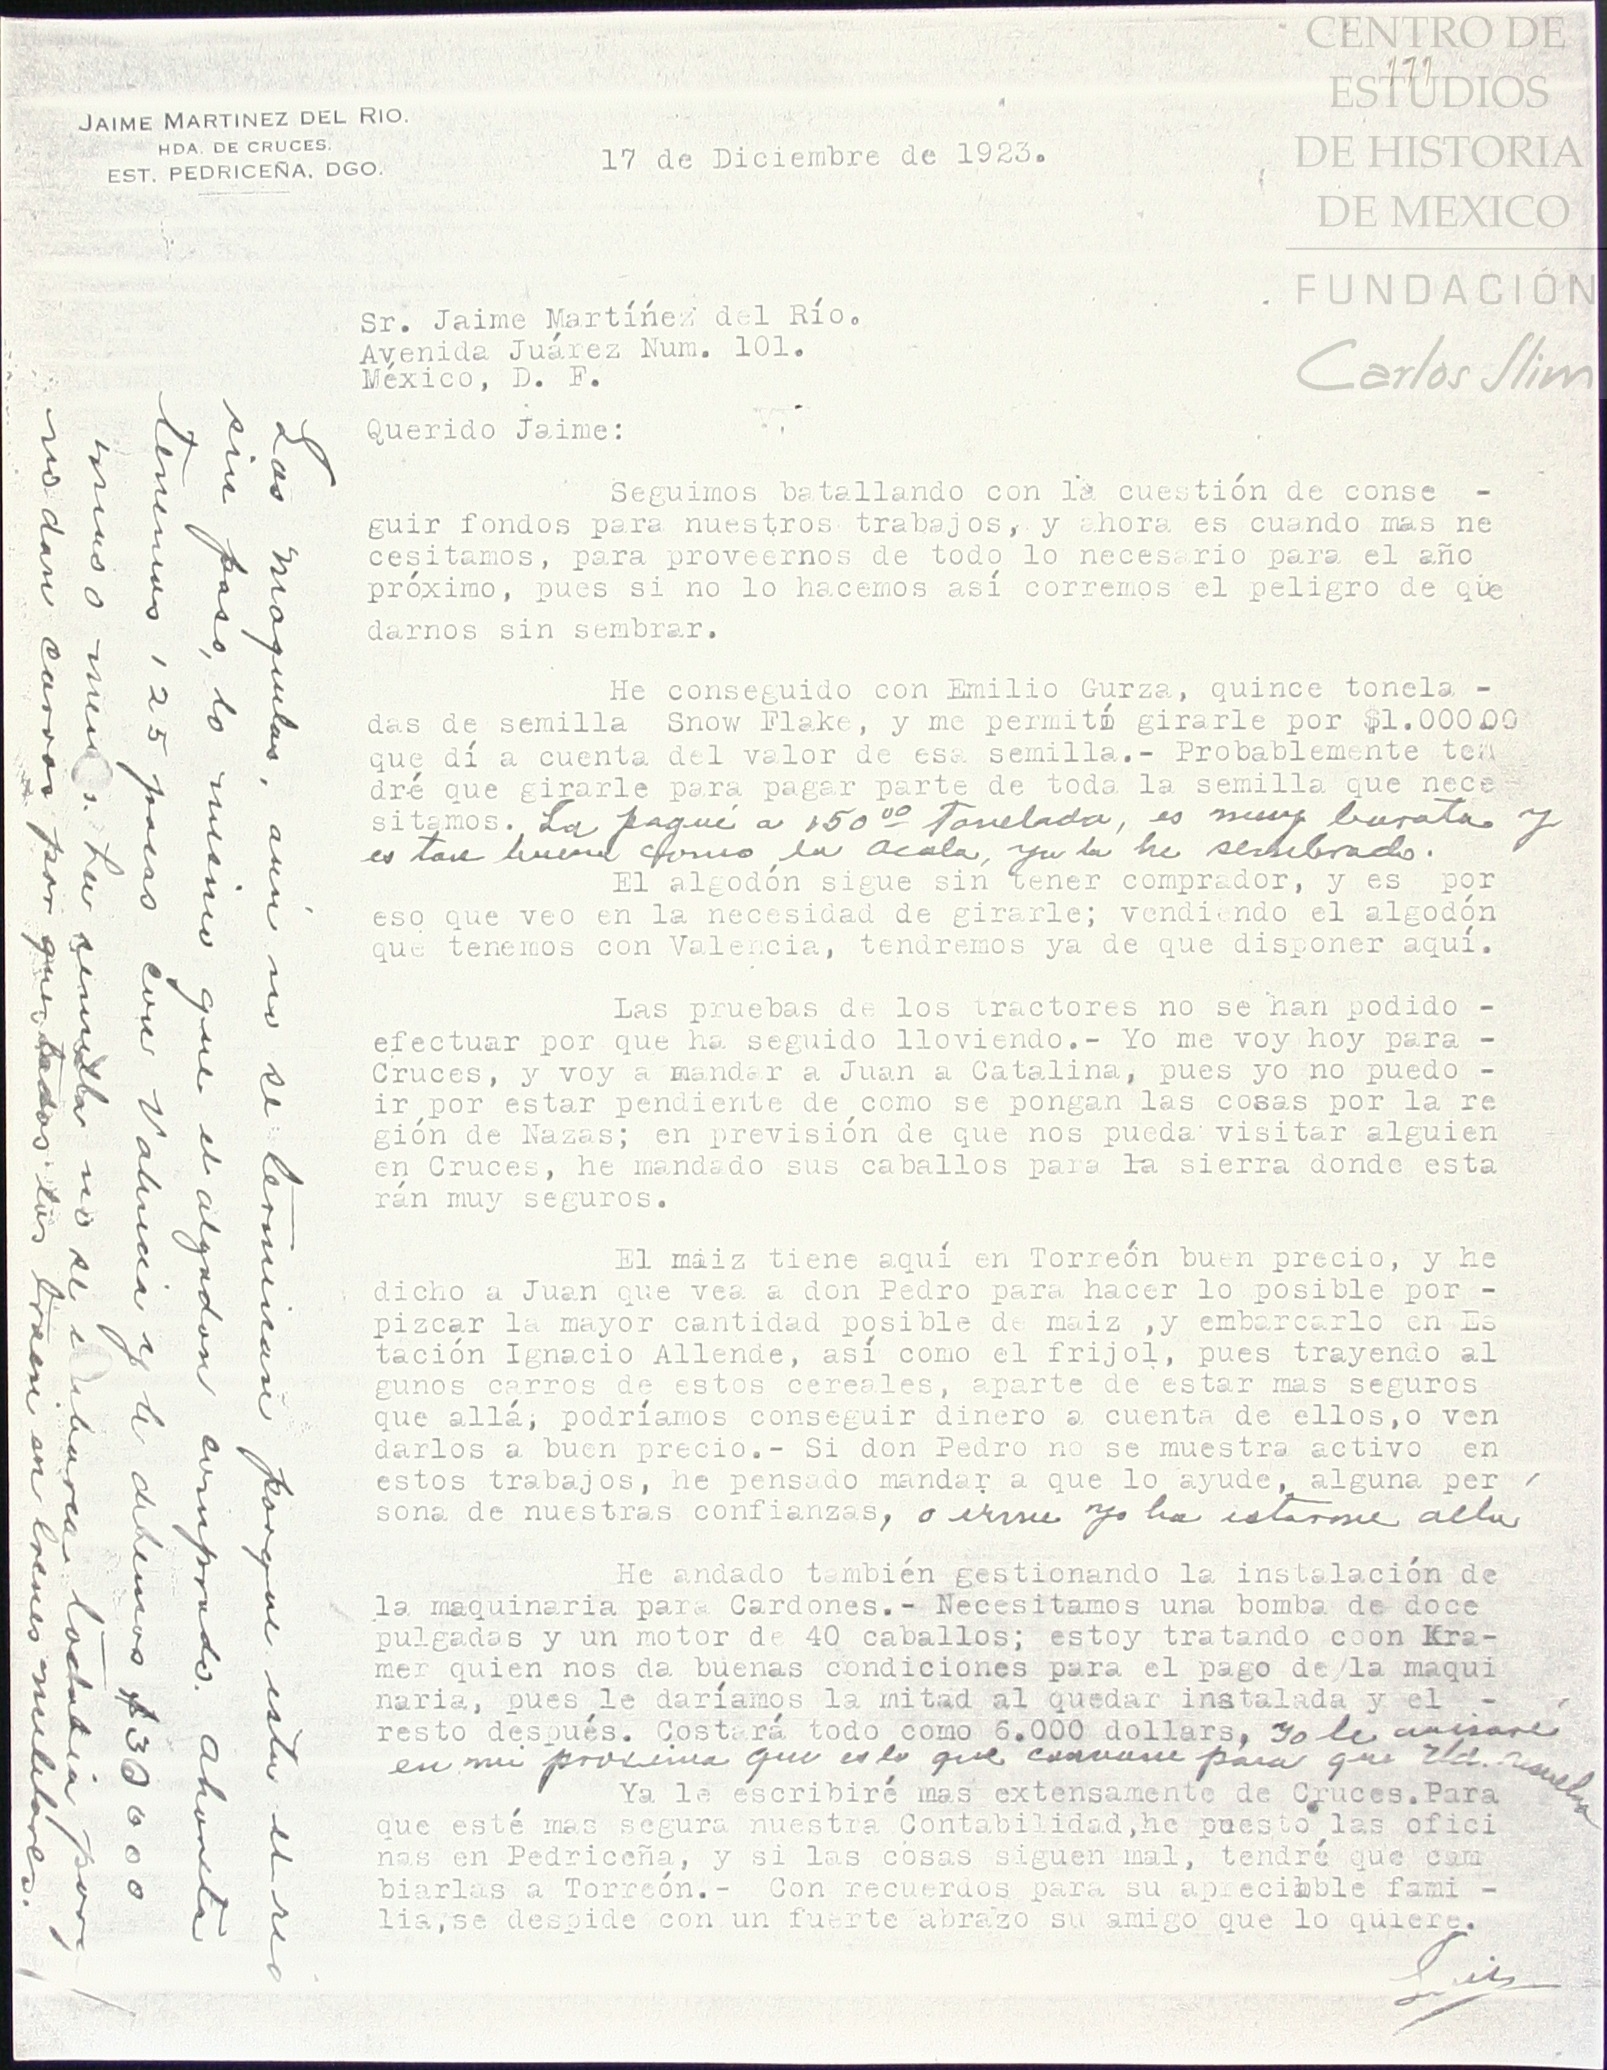 CENTRO DE
ESTUDIOS
DE HISTORIA
DE MEXICO
FUNDACIÓN
Carlos Slim
JAIME MARTINEZ DEL RIO.
HDA. DE CRUCES.
EST. PEDRICEÑA, DGO.
17 de Diciembre de 1923.
Sr. Jaime Martíñez del Río.
Avenida Juárez Num. 101.
México, D. F.
Querido Jaime:
Seguimos batallando con la cuestión de conse -
guir fondos para nuestros trabajos, y ahora es cuando mas ne
cesitamos, para proveernos de todo lo necesario para el año
próximo, pues si no lo hacemos así corremos el peligro de que
darnos sin sembrar.
He conseguido con Emilio Gurza, quince tonela -
das de semilla Snow Flake, y me permití girarle por $1.000.00
que dí a cuenta del valor de esa semilla.- Probablemente ten
dré que girarle para pagar parte de toda la semilla que nece
sitamos. La pagué a 150 00 Tonelada, es muy barata y
es tan buena como la acala, ya la he sembrado.
El algodón sigue sin tener comprador, y es por
eso que veo en la necesidad de girarle; vendiendo el algodón
que tenemos con Valencia, tendremos ya de que disponer aquí.
Las pruebas de los tractores no se han podido -
efectuar por que ha seguido lloviendo.- Yo me voy hoy para -
Cruces, y voy a mandar a Juan a Catalina, pues yo no puedo -
ir por estar pendiente de como se pongan las cosas por la re
gión de Nazas; en previsión de que nos pueda visitar alguien
en Cruces, he mandado sus caballos para la sierra donde esta
rán muy seguros.
El maiz tiene aquí en Torreón buen precio, y he
dicho a Juan que vea a don Pedro para hacer lo posible por -
pizcar la mayor cantidad posible de maiz ,y embarcarlo en Es
tación Ignacio Allende, así como el frijol, pues trayendo al
gunos carros de estos cereales, aparte de estar mas seguros
que allá; podríamos conseguir dinero a cuenta de ellos,o ven
darlos a buen precio.- Si don Pedro no se muestra activo en
estos trabajos, he pensado mandar a que lo ayude, alguna per
sona de nuestras confianzas, o irme yo ha estarme alla
He andado también gestionando la instalación de
la maquinaria para Cardones.- Necesitamos una bomba de doce
pulgadas y un motor de 40 caballos; estoy tratando coon Kra-
mer quien nos da buenas condiciones para el pago de la maqui
naria, pues le daríamos la mitad al quedar instalada y el -
resto después. Costará todo como 6.000 dollars, yo le avisaré
en mi proxima que es lo que conviene para que Ud. resuelva
Ya le escribiré mas extensamente de Cruces.Para
que esté mas segura nuestra Contabilidad,he puesto las ofici
nas en Pedriceña, y si las cosas siguen mal, tendré que cam
biarlas a Torreón.- Con recuerdos para su apreciable fami -
lia,se despide con un fuerte abrazo su amigo que lo quiere.
Luis
Las maquilas, aún no se terminan porque esta el rio
sin paso, lo mismo que el algodon comprado. ahorita
tenemos 125 pacas con Valencia y le debemos $3000
mas o menos. La semilla no se embarca todabia por
no dan carros por que todos los traen en trenes militares.